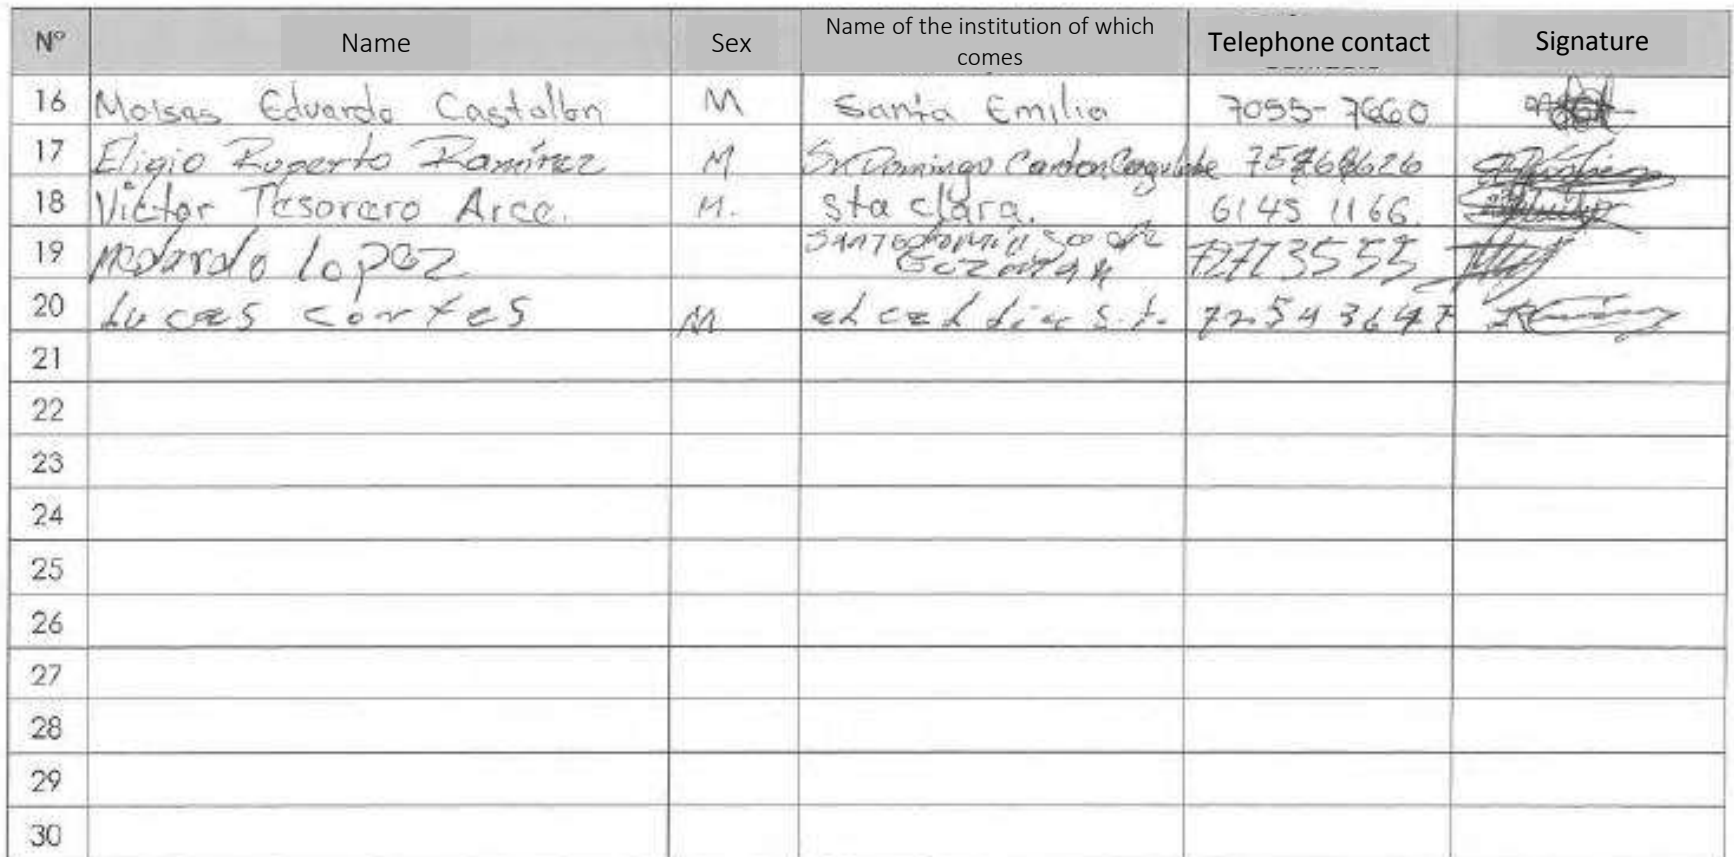 N° Name Sex Name of the institution of which comes Telephone contact Signature
16 Moises Eduardo Castellon M Santa Emilia 7055-7660
17 Eligio Ruperto Ramírez M Sn Domingo Canton
18 Victor Tesorero Arce. M. Sta clara. 6145 1166.
19 medardo lopez 72723555
20 Lucas cortes M
21
22
23
24
25
26
27
28
29
30